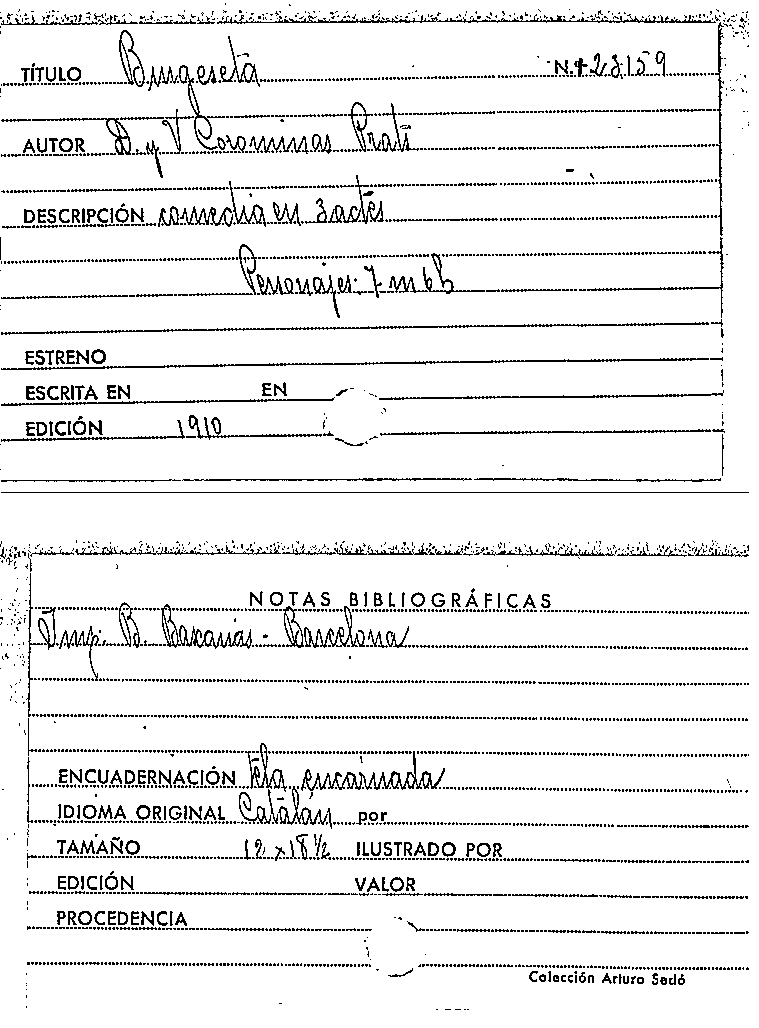 TÍTULO Burgeseta N.º 23159
AUTOR D. y V Corominas Prats
DESCRIPCIÓN comedia en 3 actes
Personajes: 7 m 6 h
ESTRENO
ESCRITA EN EN
EDICIÓN 1910
NOTAS BIBLIOGRÁFICAS
Imp. B. Baxarias - Barcelona
ENCUADERNACIÓN tela encarnada
IDIOMA ORIGINAL Catalán por
TAMAÑO 12 x 18 ½ ILUSTRADO POR
EDICIÓN VALOR
PROCEDENCIA
Colección Arturo Sedó